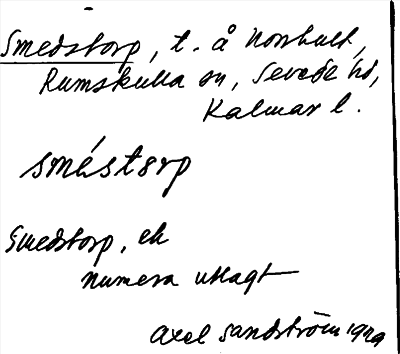 Smedstorp, t. å Norrhult,
Rumskulla sn, Sevede hd,
Kalmar l.
sméstorp
Smedstorp, ek
numera utlagt
Axel Sandström 1929